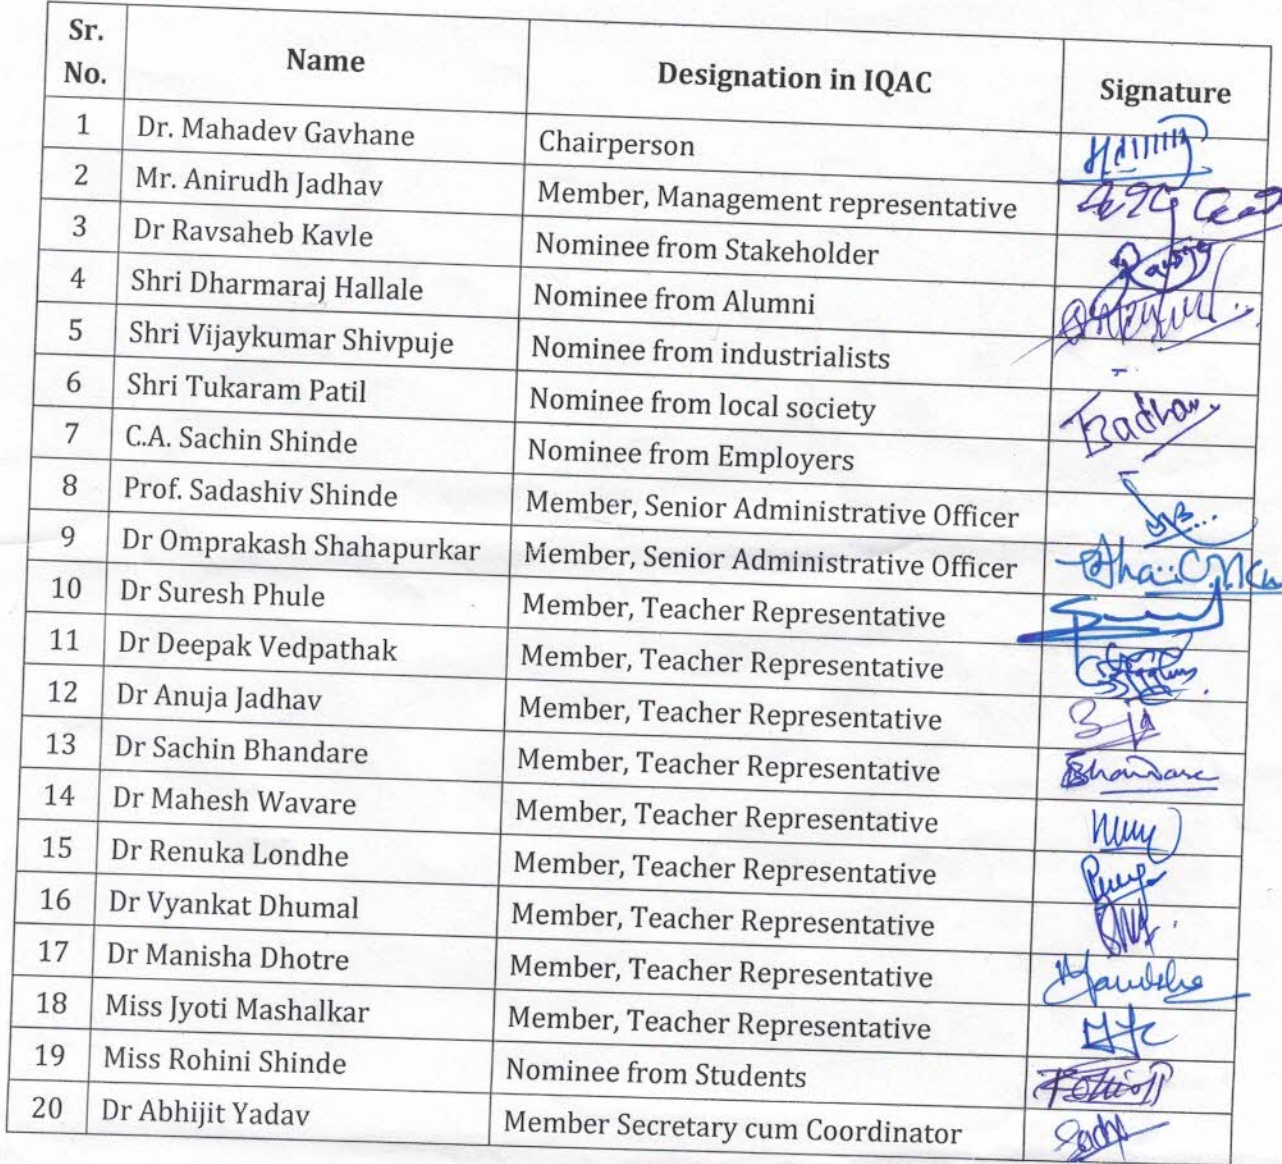 Sr. No. Name Designation in IQAC Signature
1 Dr. Mahadev Gavhane Chairperson
2 Mr. Anirudh Jadhav Member, Management representative
3 Dr Ravsaheb Kavle Nominee from Stakeholder
4 Shri Dharmaraj Hallale Nominee from Alumni
5 Shri Vijaykumar Shivpuje Nominee from industrialists
6 Shri Tukaram Patil Nominee from local society
7 C.A. Sachin Shinde Nominee from Employers
8 Prof. Sadashiv Shinde Member, Senior Administrative Officer
9 Dr Omprakash Shahapurkar Member, Senior Administrative Officer
10 Dr Suresh Phule Member, Teacher Representative
11 Dr Deepak Vedpathak Member, Teacher Representative
12 Dr Anuja Jadhav Member, Teacher Representative
13 Dr Sachin Bhandare Member, Teacher Representative Bhandare
14 Dr Mahesh Wavare Member, Teacher Representative
15 Dr Renuka Londhe Member, Teacher Representative
16 Dr Vyankat Dhumal Member, Teacher Representative
17 Dr Manisha Dhotre Member, Teacher Representative
18 Miss Jyoti Mashalkar Member, Teacher Representative
19 Miss Rohini Shinde Nominee from Students
20 Dr Abhijit Yadav Member Secretary cum Coordinator